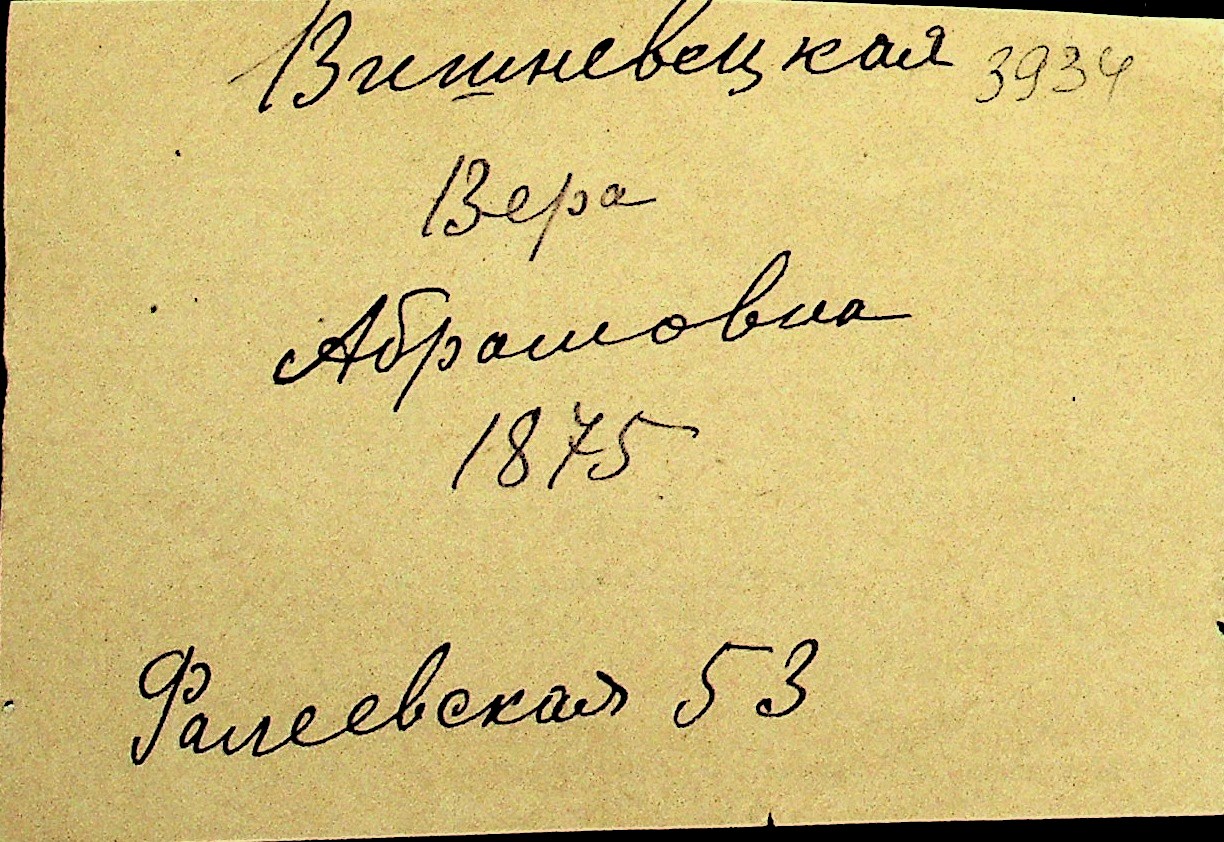 Вишневецкая 3934
Вера
Абрамовна
1875
Фалеевская 53